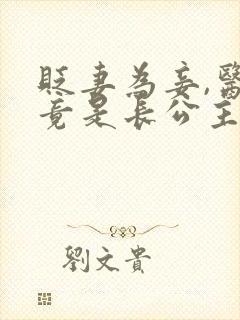 貶妻為妾,醫
竟是長公主
劉文貴